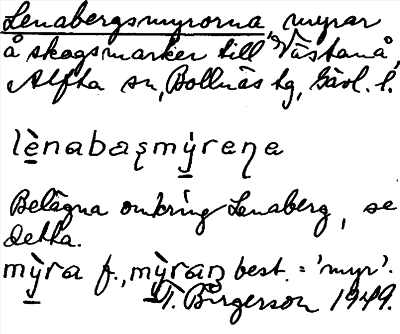 Lenabergsmyrorna, myrar
å skogsmarker till Västanå,
Alfta sn, Bollnäs tg, Gävl. l.
lè̠nabaʂmỳ̠rεɳa
Belägna omkring Lenaberg, se
detta.
mỳ̠ra f., mỳ̠ran best. = 'myr'.
T. Birgerson 1949.